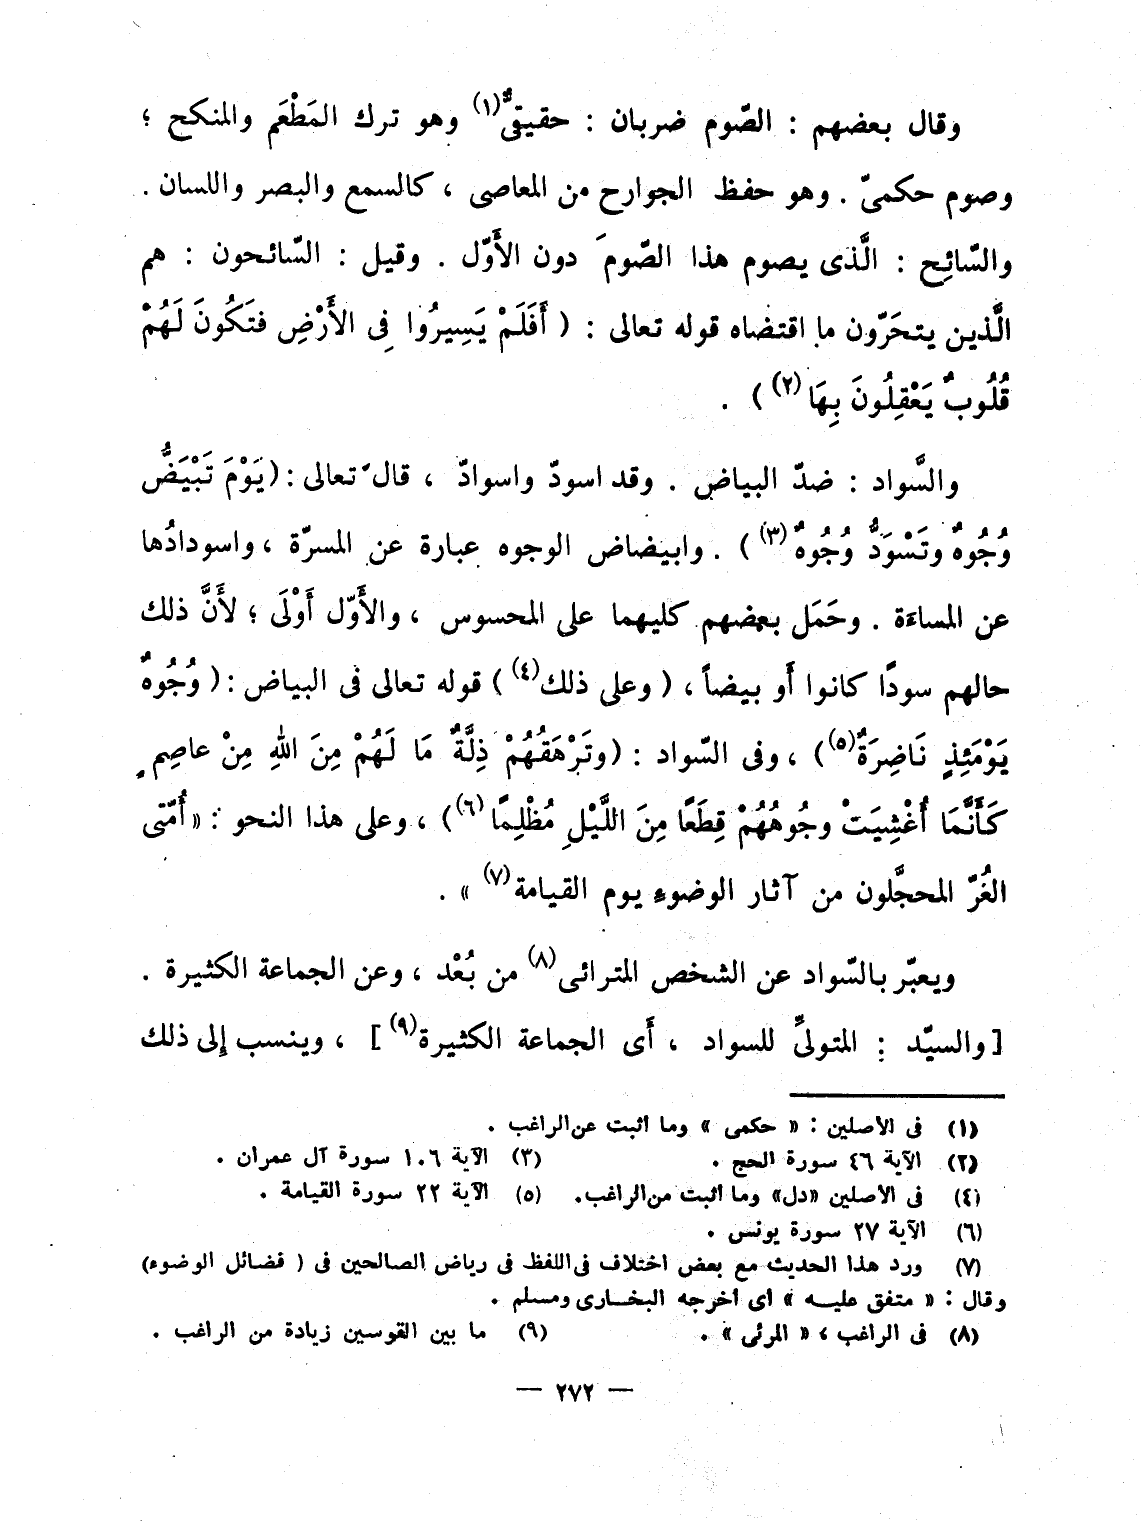 وقال بعضهم : الصّوم ضربان : حقيقىٌّ(١) وهو ترك المَطْعَم والمنكح ؛
وصوم حكمىّ . وهو حفظ الجوارح من المعاصى ، كالسمع والبصر واللسان .
والسّائِح : الَّذى يصوم هذا الصّومَ دون الأَوّل . وقيل : السّائحون : هم
الَّذين يتحَرّون ما اقتضاه قوله تعالى : ( أَفَلَمْ يَسِيرُوا فِى الأَرْضِ فتَكُونَ لَهُمْ
قُلُوبٌ يَعْقِلُونَ بِهَا(٢) ) .
والسَّواد : ضدّ البياض . وقد اسودّ واسوادّ ، قال تعالى : (يَوْمَ تَبْيَضُّ
وُجُوهٌ وتَسْوَدُّ وُجُوهٌ(٣) ) . وابيضاض الوجوه عبارة عن المسرّة ، واسودادُها
عن المساءَة . وحَمَل بعضهم كليهما على المحسوس ، والأَوّل أَوْلَى ؛ لأَنَّ ذلك
حالهم سودًا كانوا أَو بيضاً ، ( وعلى ذلك(٤) ) قوله تعالى فى البياض : ( وُجُوهٌ
يَوْمَئِذٍ نَاضِرَةٌ(٥) ) ، وفى السّواد : (وتَرْهَقُهُمْ ذِلَّةٌ مَا لَهُمْ مِنَ اللهِ مِنْ عاصِمٍ
كَأَنَّمَا أُغْشِيَتْ وجُوهُهُمْ قِطَعًا مِنَ اللَّيْلِ مُظْلِمًا(٦) ) ، وعلى هذا النحو : « أُمّتى
الغُرّ المحجَّلون من آثار الوضوءِ يوم القيامة(٧) » .
ويعبّر بالسّواد عن الشخص المترائى(٨) من بُعْد ، وعن الجماعة الكثيرة .
[ والسيّد : المتولِّى للسواد ، أَى الجماعة الكثيرة(٩) ] ، وينسب إلى ذلك
(١) فى الأصلين : « حكمى » وما أثبت عن الراغب .
(٢) الآية ٤٦ سورة الحج . (٣) الآية ١٠٦ سورة آل عمران .
(٤) فى الأصلين «دل» وما أثبت من الراغب. (٥) الآية ٢٢ سورة القيامة .
(٦) الآية ٢٧ سورة يونس .
(٧) ورد هذا الحديث مع بعض اختلاف فى اللفظ فى رياض الصالحين فى ( فضائل الوضوء)
وقال : « متفق عليه » أى أخرجه البخارى ومسلم .
(٨) فى الراغب ، « المرئى » . (٩) ما بين القوسين زيادة من الراغب .
— ٢٧٢ —